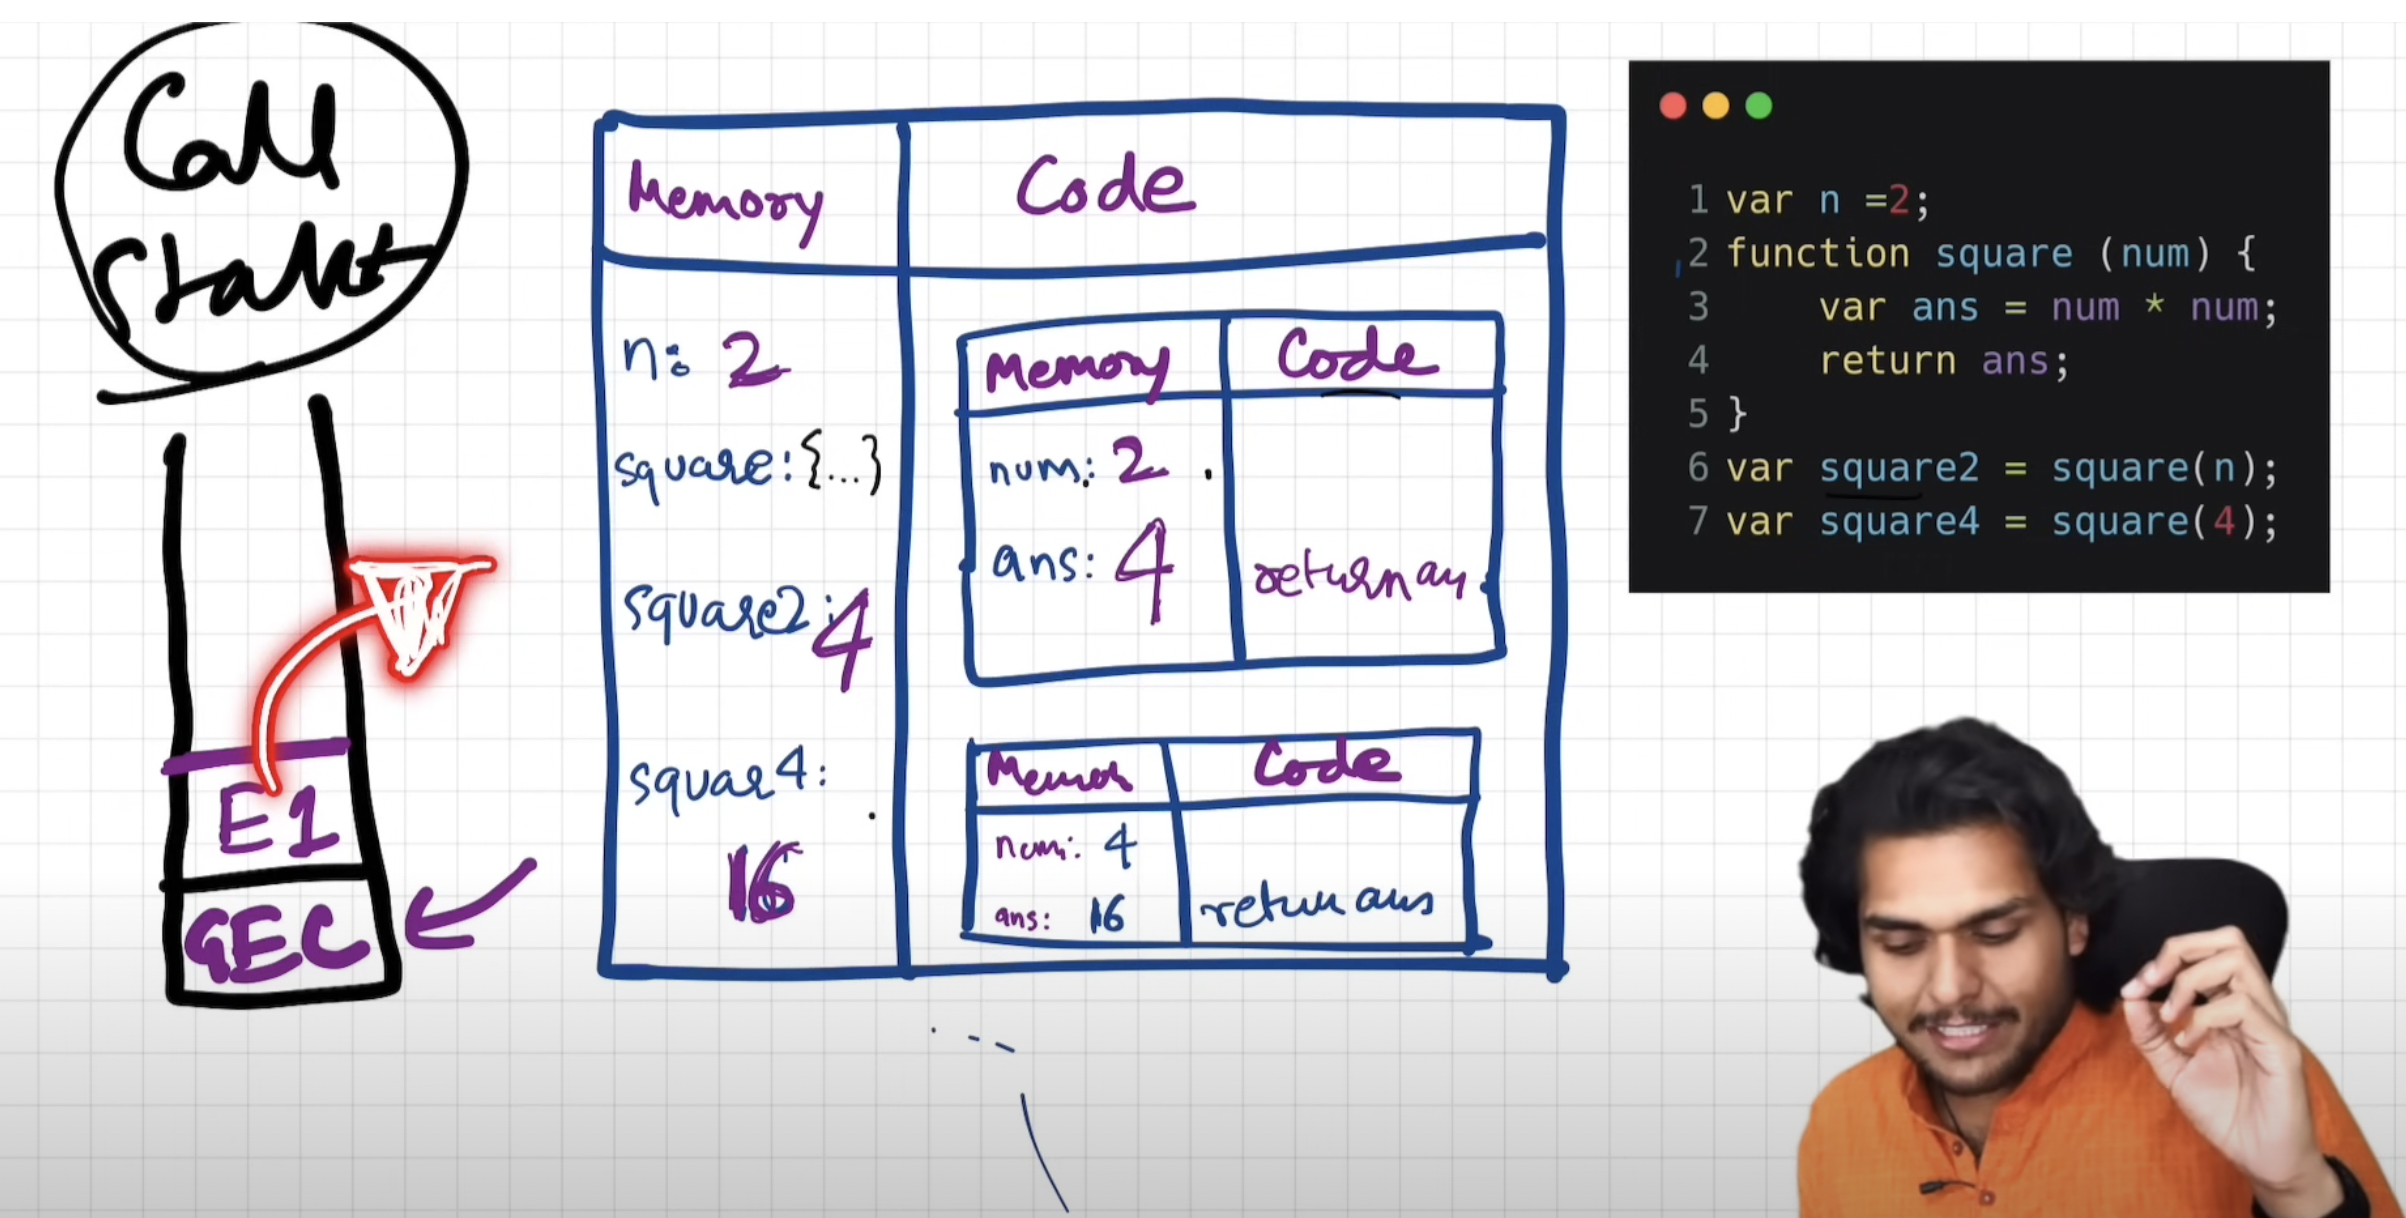 Call
Stack
E1
GEC
Memory
Code
n: 2
square: {...}
square2: 4
squar4:
16
Memory
Code
num: 2
ans: 4
return an
Memor
Code
num: 4
ans: 16
return ans
1 var n =2;
2 function square (num) {
3 var ans = num * num;
4 return ans;
5 }
6 var square2 = square(n);
7 var square4 = square(4);